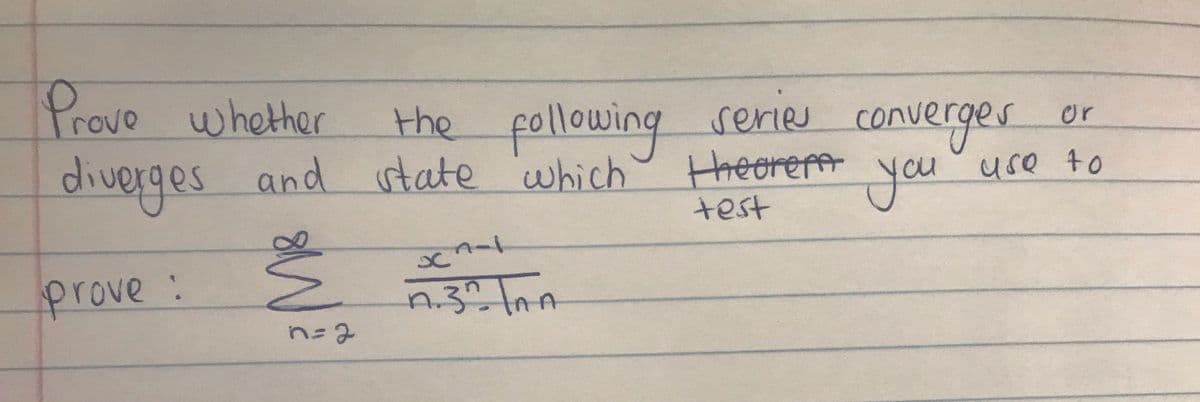 Prove whether the following series converges or
diverges and state which ~~theorem~~ you use to
test
prove : ∞ Σ n=2 x^{n-1} / n.3^n. ln n